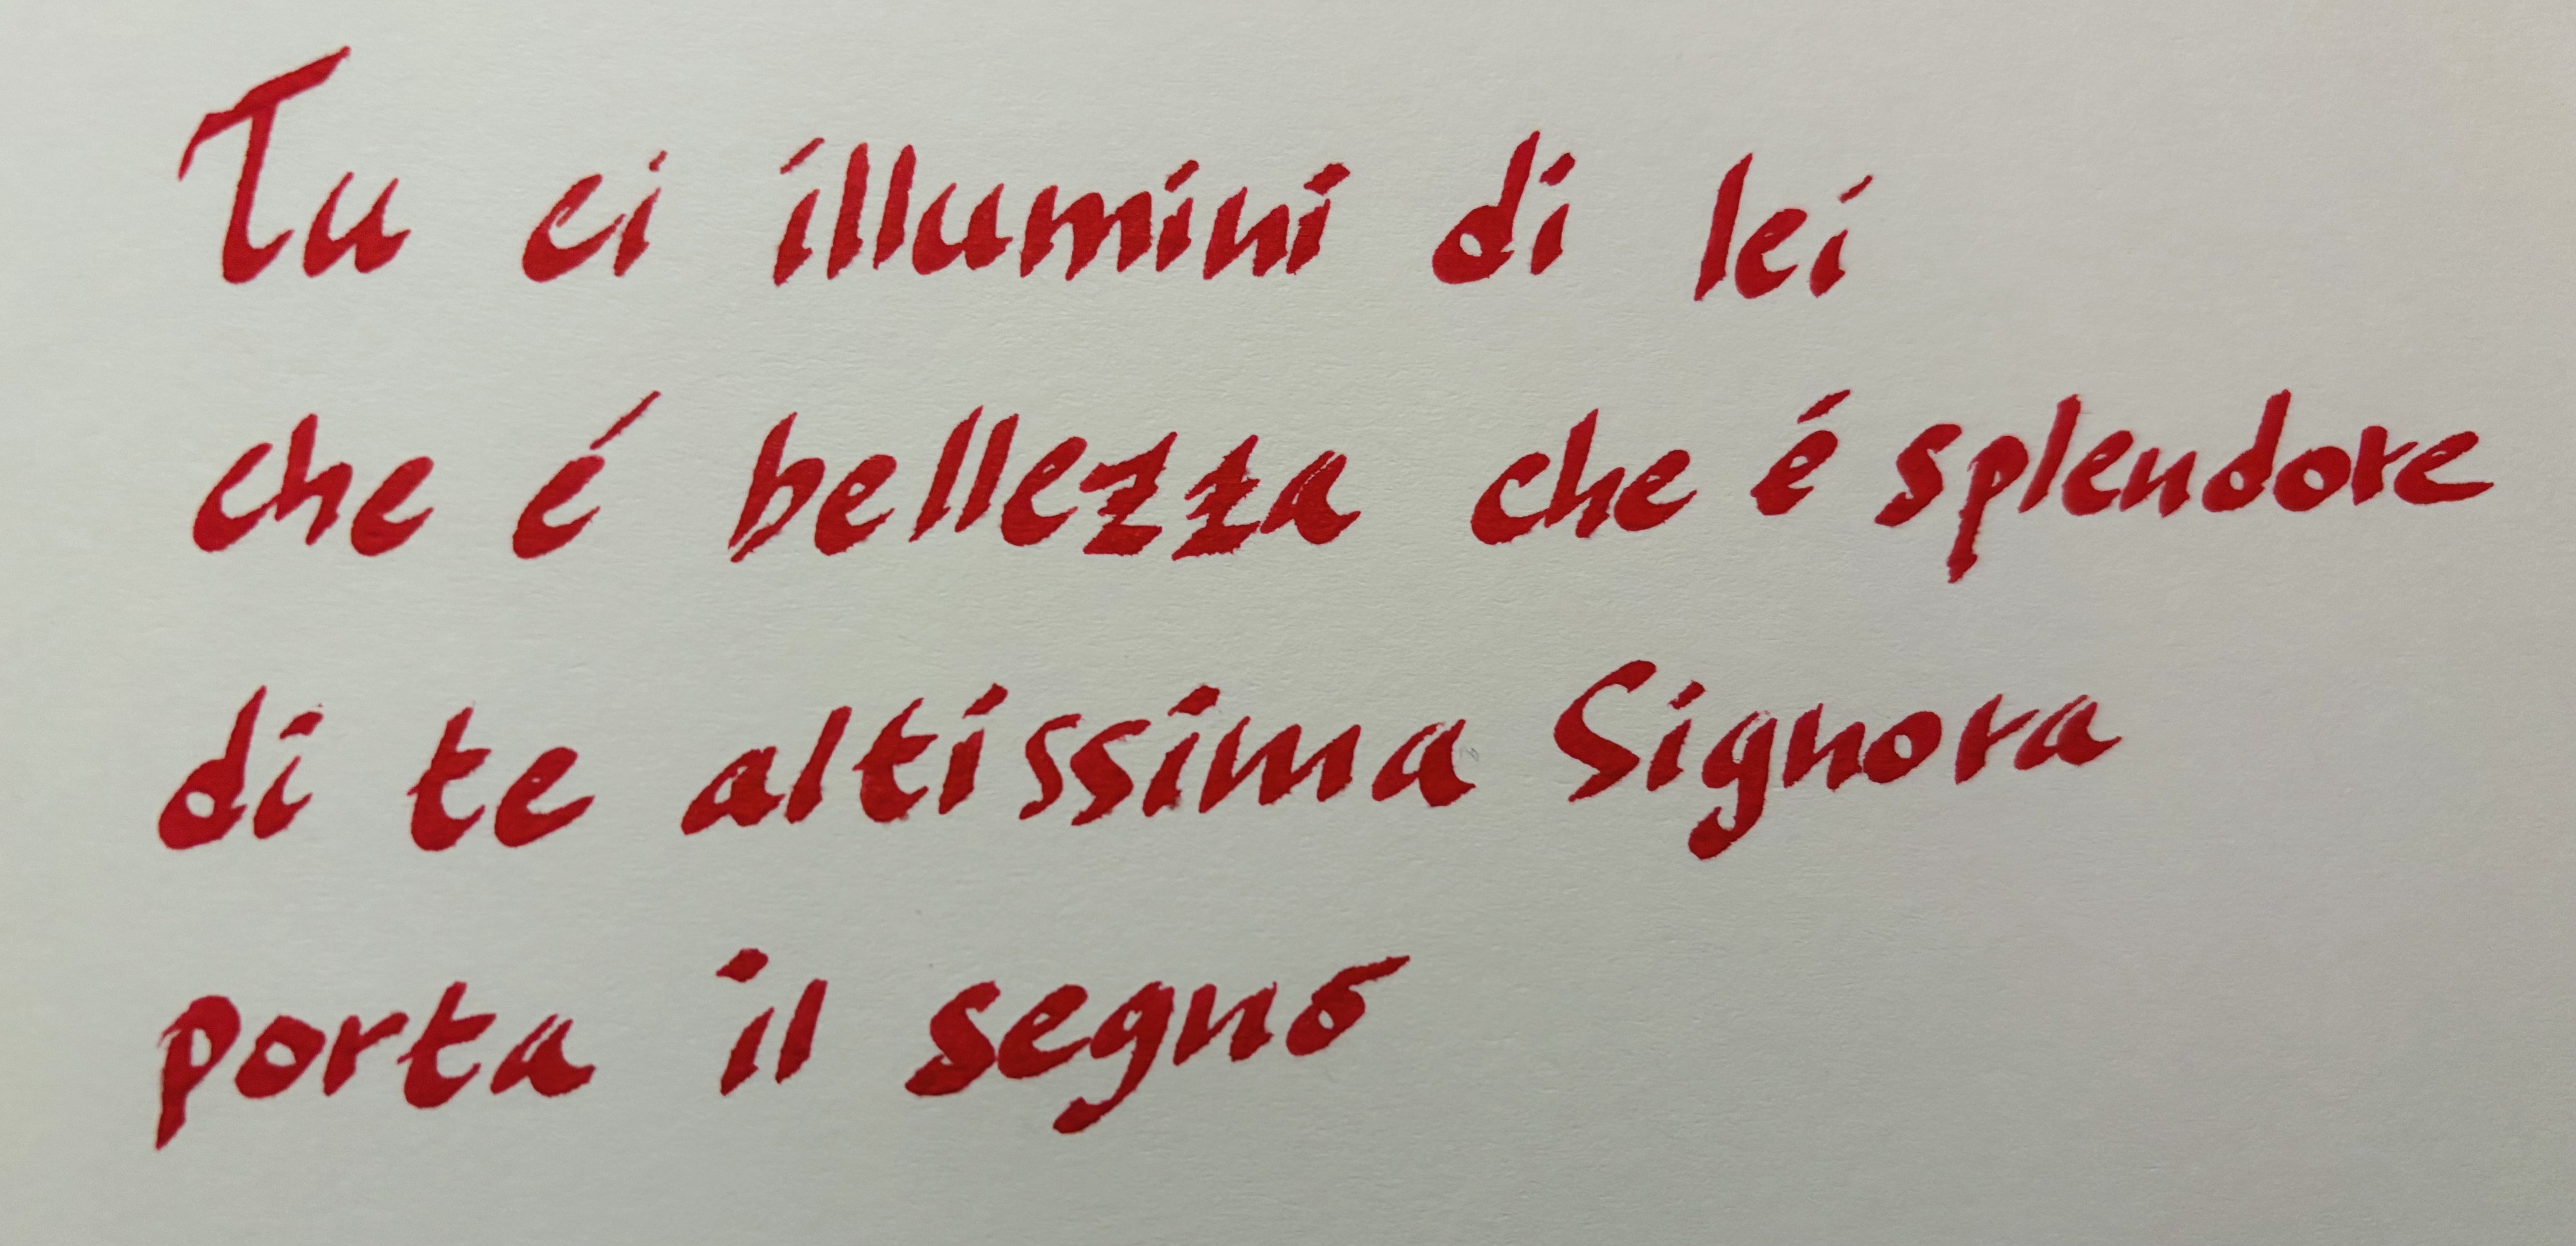 Tu ci illumini di lei
che é bellezza che é splendore
di te altissima Signora
porta il segno